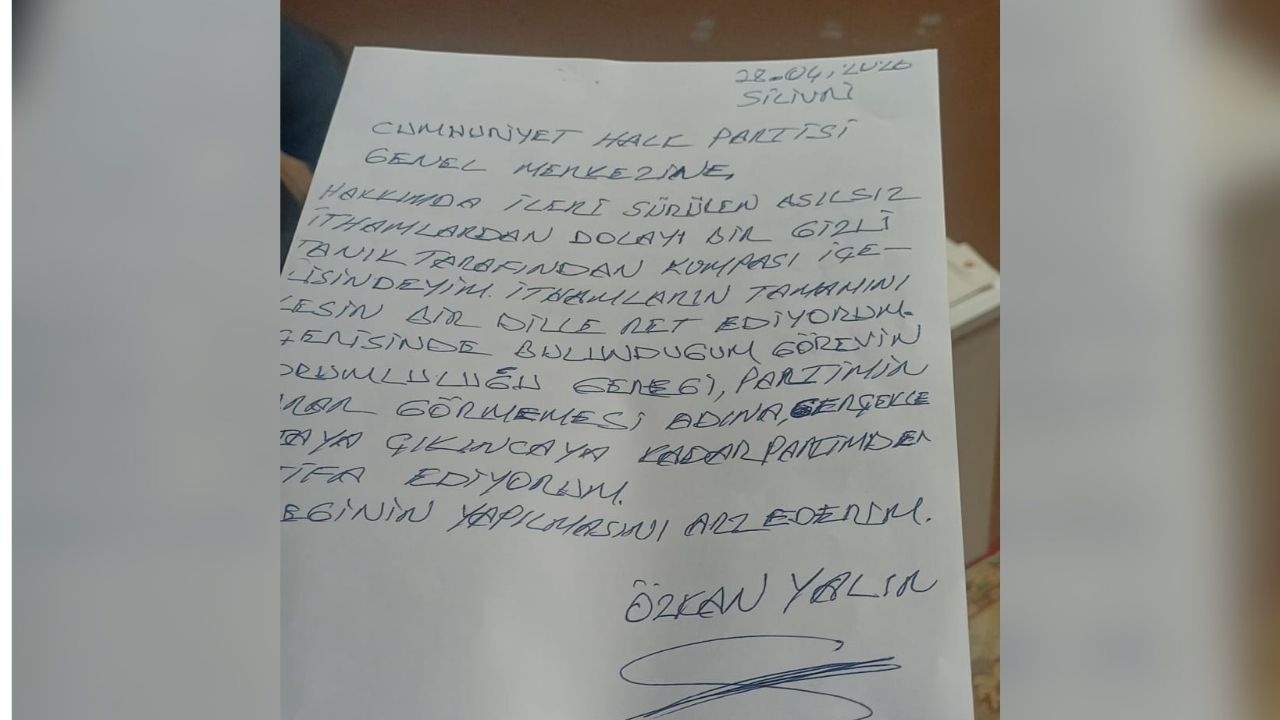 28.04.2026
SİLİVRİ
CUMHURİYET HALK PARTİSİ
GENEL MERKEZİNE,
HAKKIMDA İLERİ SÜRÜLEN ASILSIZ
İTHAMLARDAN DOLAYI BİR GİZLİ
TANIK TARAFINDAN KUMPASI İÇE-
LİSİNDEYİM. İTHAMLARIN TAMAMINI
KESİN BİR DİLLE RET EDİYORUM.
ÇERİSİNDE BULUNDUĞUM GÖREVİN
ORUMLULUĞU GEREGİ, PARTİMİN
ARAR GÖRMEMESİ ADINA, GERÇEKLE
TAYA ÇIKINCAYA KADAR PARTİMDEN
TİFA EDİYORUM.
EĞİNİN YAPILMASINI ARZ EDERİM.
ÖZKAN YALIM